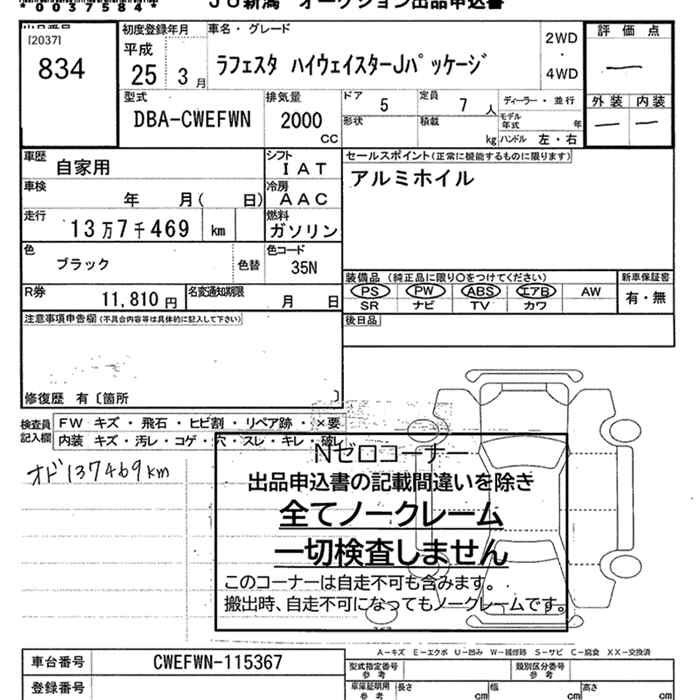 *0037584* JU新潟 オークション出品申込書
[2037]
834
初度登録年月
平成
25 3月
車名・グレード
ラフェスタ ハイウェイスターJパッケージ
2WD
・
4WD
評価点
—
外装 内装
— —
型式
DBA-CWEFWN
排気量
2000
CC
ドア 5
定員 7 人
ディーラー・並行
形状
積載 kg
モデル年式 年
ハンドル 左・右
車歴
自家用
シフト
IAT
セールスポイント(正常に機能するものに限ります)
アルミホイル
車検
年 月( 日)
冷房
AAC
走行
13万7千469 km
燃料
ガソリン
色
ブラック
色替
色コード
35N
装備品(純正品に限り○をつけてください)
PS PW ABS エアB AW
SR ナビ TV カワ
新車保証書
有・無
R券
11,810円
名変通知期限
月 日
後日品
注意事項申告欄(不具合内容等は具体的に記入して下さい)
修復歴 有〔箇所 〕
検査員記入欄
FW キズ・飛石・ヒビ割・リペア跡・×要
内装 キズ・汚レ・コゲ・穴・スレ・キレ・破レ
オド137469km
Nゼロコーナー
出品申込書の記載間違いを除き
全てノークレーム
一切検査しません
このコーナーは自走不可も含みます。
搬出時、自走不可になってもノークレームです。
A-キズ E-エクボ U-凹み W-補修跡 S-サビ C-腐食 XX-交換済
車台番号
CWEFWN-115367
型式指定番号
参考
類別区分番号
参考
登録番号
車庫証明用
参考
長さ cm
幅 cm
高さ cm